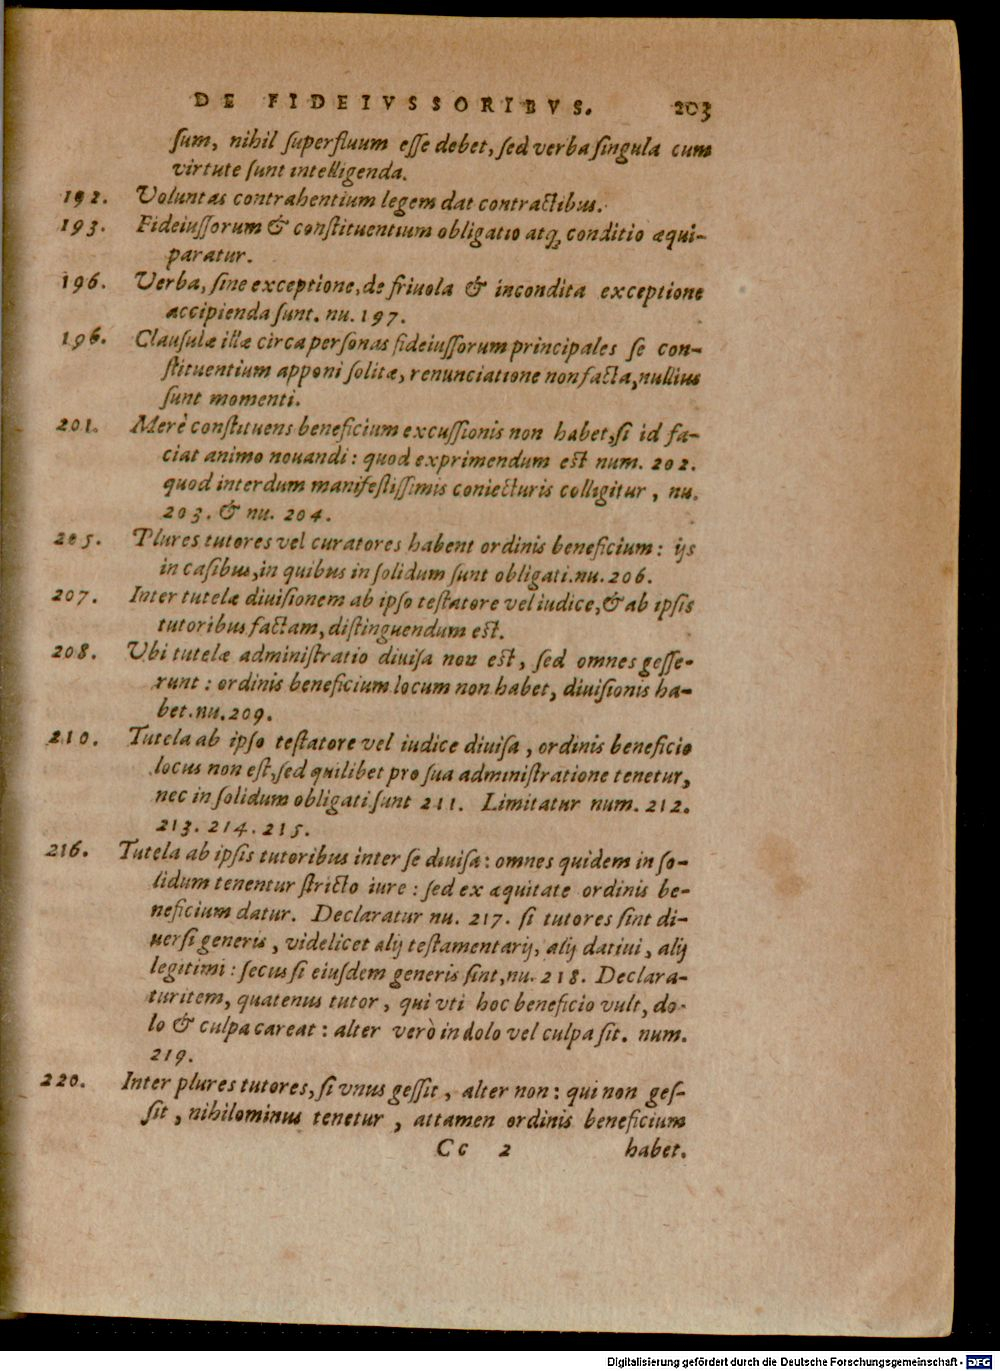 DE FIDEIVSSORIBVS. 203
ſum, nihil ſuperfluum eſſe debet, ſed verba ſingula cum
virtute ſunt intelligenda.
192. Voluntas contrahentium legem dat contractibus.
193. Fideiuſſorum & conſtituentium obligatio atq; conditio æqui-
paratur.
196. Verba, ſine exceptione, de friuola & incondita exceptione
accipienda ſunt. nu. 197.
196. Clauſulæ illæ circa perſonas fideiuſſorum principales ſe con-
ſtituentium apponi ſolitæ, renunciatione non facta, nullius
ſunt momenti.
201. Merè conſtituens beneficium excuſſionis non habet, ſi id fa-
ciat animo nouandi: quod exprimendum eſt num. 202.
quod interdum manifeſtiſſimis coniecturis colligitur, nu.
203. & nu. 204.
205. Plures tutores vel curatores habent ordinis beneficium: ijs
in caſibus, in quibus in ſolidum ſunt obligati. nu. 206.
207. Inter tutelæ diuiſionem ab ipſo teſtatore vel iudice, & ab ipſis
tutoribus factam, diſtinguendum eſt.
208. Vbi tutelæ adminiſtratio diuiſa non eſt, ſed omnes geſſe-
runt: ordinis beneficium locum non habet, diuiſionis ha-
bet. nu. 209.
210. Tutela ab ipſo teſtatore vel iudice diuiſa, ordinis beneficio
locus non eſt, ſed quilibet pro ſua adminiſtratione tenetur,
nec in ſolidum obligati ſunt 211. Limitatur num. 212.
213. 214. 215.
216. Tutela ab ipſis tutoribus inter ſe diuiſa: omnes quidem in ſo-
lidum tenentur ſtricto iure: ſed ex æquitate ordinis be-
neficium datur. Declaratur nu. 217. ſi tutores ſint di-
uerſi generis, videlicet alij teſtamentarij, alij datiui, alij
legitimi: ſecus ſi eiuſdem generis ſint, nu. 218. Declara-
tur item, quatenus tutor, qui vti hoc beneficio vult, do-
lo & culpa careat: alter verò in dolo vel culpa ſit. num.
219.
220. Inter plures tutores, ſi vnus geſſit, alter non: qui non geſ-
ſit, nihilominus tenetur, attamen ordinis beneficium
Cc 2 habet.
Digitalisierung gefördert durch die Deutsche Forschungsgemeinschaft - DFG